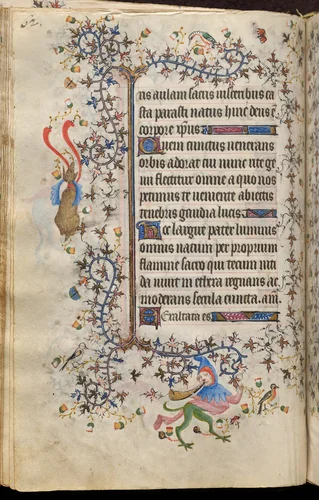 ris aulam sacris visceribus ca
sta parasti natus hinc deus est
corpore xpistus
Quem cunctus venerans
orbis adorat cui nunc rite ge
nu flectitur omne a quo nos
petimus te veniente abiectis
tenebris gaudia lucis
Hec largire pater luminis
omnis natum per proprium
flamine sacro qui tecum niti
da vivit in ethera regnans ac
moderans secula cuncta. am.
Exaltata es